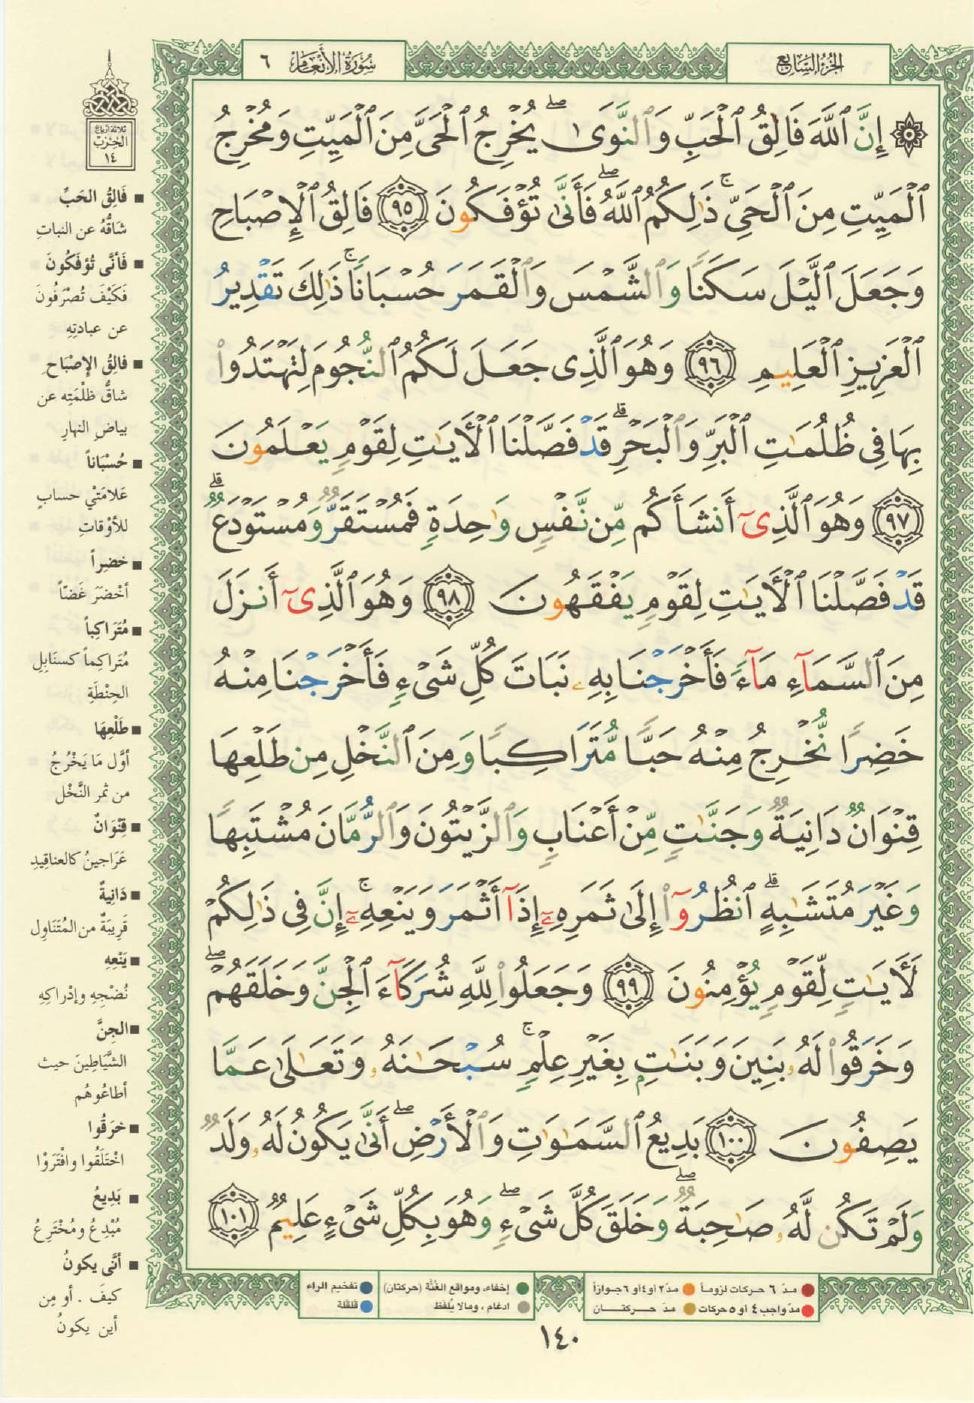 الجزء السابع
سورة الأنعام ٦
۞ إِنَّ ٱللَّهَ فَالِقُ ٱلْحَبِّ وَٱلنَّوَىٰ ۖ يُخْرِجُ ٱلْحَىَّ مِنَ ٱلْمَيِّتِ وَمُخْرِجُ
ٱلْمَيِّتِ مِنَ ٱلْحَىِّ ۚ ذَٰلِكُمُ ٱللَّهُ ۖ فَأَنَّىٰ تُؤْفَكُونَ ٩٥ فَالِقُ ٱلْإِصْبَاحِ
وَجَعَلَ ٱلَّيْلَ سَكَنًا وَٱلشَّمْسَ وَٱلْقَمَرَ حُسْبَانًا ۚ ذَٰلِكَ تَقْدِيرُ
ٱلْعَزِيزِ ٱلْعَلِيمِ ٩٦ وَهُوَ ٱلَّذِى جَعَلَ لَكُمُ ٱلنُّجُومَ لِتَهْتَدُوا۟
بِهَا فِى ظُلُمَٰتِ ٱلْبَرِّ وَٱلْبَحْرِ ۗ قَدْ فَصَّلْنَا ٱلْـَٔايَٰتِ لِقَوْمٍ يَعْلَمُونَ
٩٧ وَهُوَ ٱلَّذِىٓ أَنشَأَكُم مِّن نَّفْسٍ وَٰحِدَةٍ فَمُسْتَقَرٌّ وَمُسْتَوْدَعٌ ۗ
قَدْ فَصَّلْنَا ٱلْـَٔايَٰتِ لِقَوْمٍ يَفْقَهُونَ ٩٨ وَهُوَ ٱلَّذِىٓ أَنزَلَ
مِنَ ٱلسَّمَآءِ مَآءً فَأَخْرَجْنَا بِهِۦ نَبَاتَ كُلِّ شَىْءٍ فَأَخْرَجْنَا مِنْهُ
خَضِرًا نُّخْرِجُ مِنْهُ حَبًّا مُّتَرَاكِبًا وَمِنَ ٱلنَّخْلِ مِن طَلْعِهَا
قِنْوَانٌ دَانِيَةٌ وَجَنَّٰتٍ مِّنْ أَعْنَابٍ وَٱلزَّيْتُونَ وَٱلرُّمَّانَ مُشْتَبِهًا
وَغَيْرَ مُتَشَٰبِهٍ ۗ ٱنظُرُوٓا۟ إِلَىٰ ثَمَرِهِۦٓ إِذَآ أَثْمَرَ وَيَنْعِهِۦٓ ۚ إِنَّ فِى ذَٰلِكُمْ
لَـَٔايَٰتٍ لِّقَوْمٍ يُؤْمِنُونَ ٩٩ وَجَعَلُوا۟ لِلَّهِ شُرَكَآءَ ٱلْجِنَّ وَخَلَقَهُمْ ۖ
وَخَرَقُوا۟ لَهُۥ بَنِينَ وَبَنَٰتٍۭ بِغَيْرِ عِلْمٍ ۚ سُبْحَٰنَهُۥ وَتَعَٰلَىٰ عَمَّا
يَصِفُونَ ١٠٠ بَدِيعُ ٱلسَّمَٰوَٰتِ وَٱلْأَرْضِ ۖ أَنَّىٰ يَكُونُ لَهُۥ وَلَدٌ
وَلَمْ تَكُن لَّهُۥ صَٰحِبَةٌ ۖ وَخَلَقَ كُلَّ شَىْءٍ ۖ وَهُوَ بِكُلِّ شَىْءٍ عَلِيمٌ ١٠١
ثلاثة أرباع
الحزب
١٤
فَالِقُ الحَبِّ
شَاقُّهُ عن النباتِ
فَأنَّى تُؤفَكُونَ
فَكَيْفَ تُصْرَفُونَ
عن عبادتِهِ
فالِقُ الإصْبَاحِ
شاقُّ ظلْمَتِه عن
بياضِ النهارِ
حُسْبَاناً
عَلامَتَيْ حسابٍ
للأوْقاتِ
خضِراً
أخْضَرَ غَضّاً
مُتَرَاكِباً
مُتَرَاكِماً كسنَابِلِ
الحِنْطَةِ
طَلْعِهَا
أوَّل مَا يَخْرُجُ
من ثمر النَّخْل
قِنْوَانٌ
عَرَاجينُ كالعناقِيدِ
دَانِيَةٌ
قَرِيبَةٌ من المُتَنَاوِل
يَنْعِهِ
نُضْجِهِ وإدْراكِهِ
الجِنَّ
الشَّيَاطِينَ حيث
أطاعُوهُم
خرَقُوا
اخْتَلَقُوا وافْتَرَوْا
بَدِيعُ
مُبْدِعُ ومُخْتَرِعُ
أنَّى يكونُ
كيفَ . أو مِن
أين يكونُ
مدّ ٦ حركات لزوماً
مدّ٢ او٤او ٦جوازاً
إخفاء، ومواقع الغُنَّة (حركتان)
تفخيم الراء
مدّ واجب ٤ او ٥ حركات
مدّ حركتان
ادغام ، ومالا يُلفظ
قلقلة
١٤٠